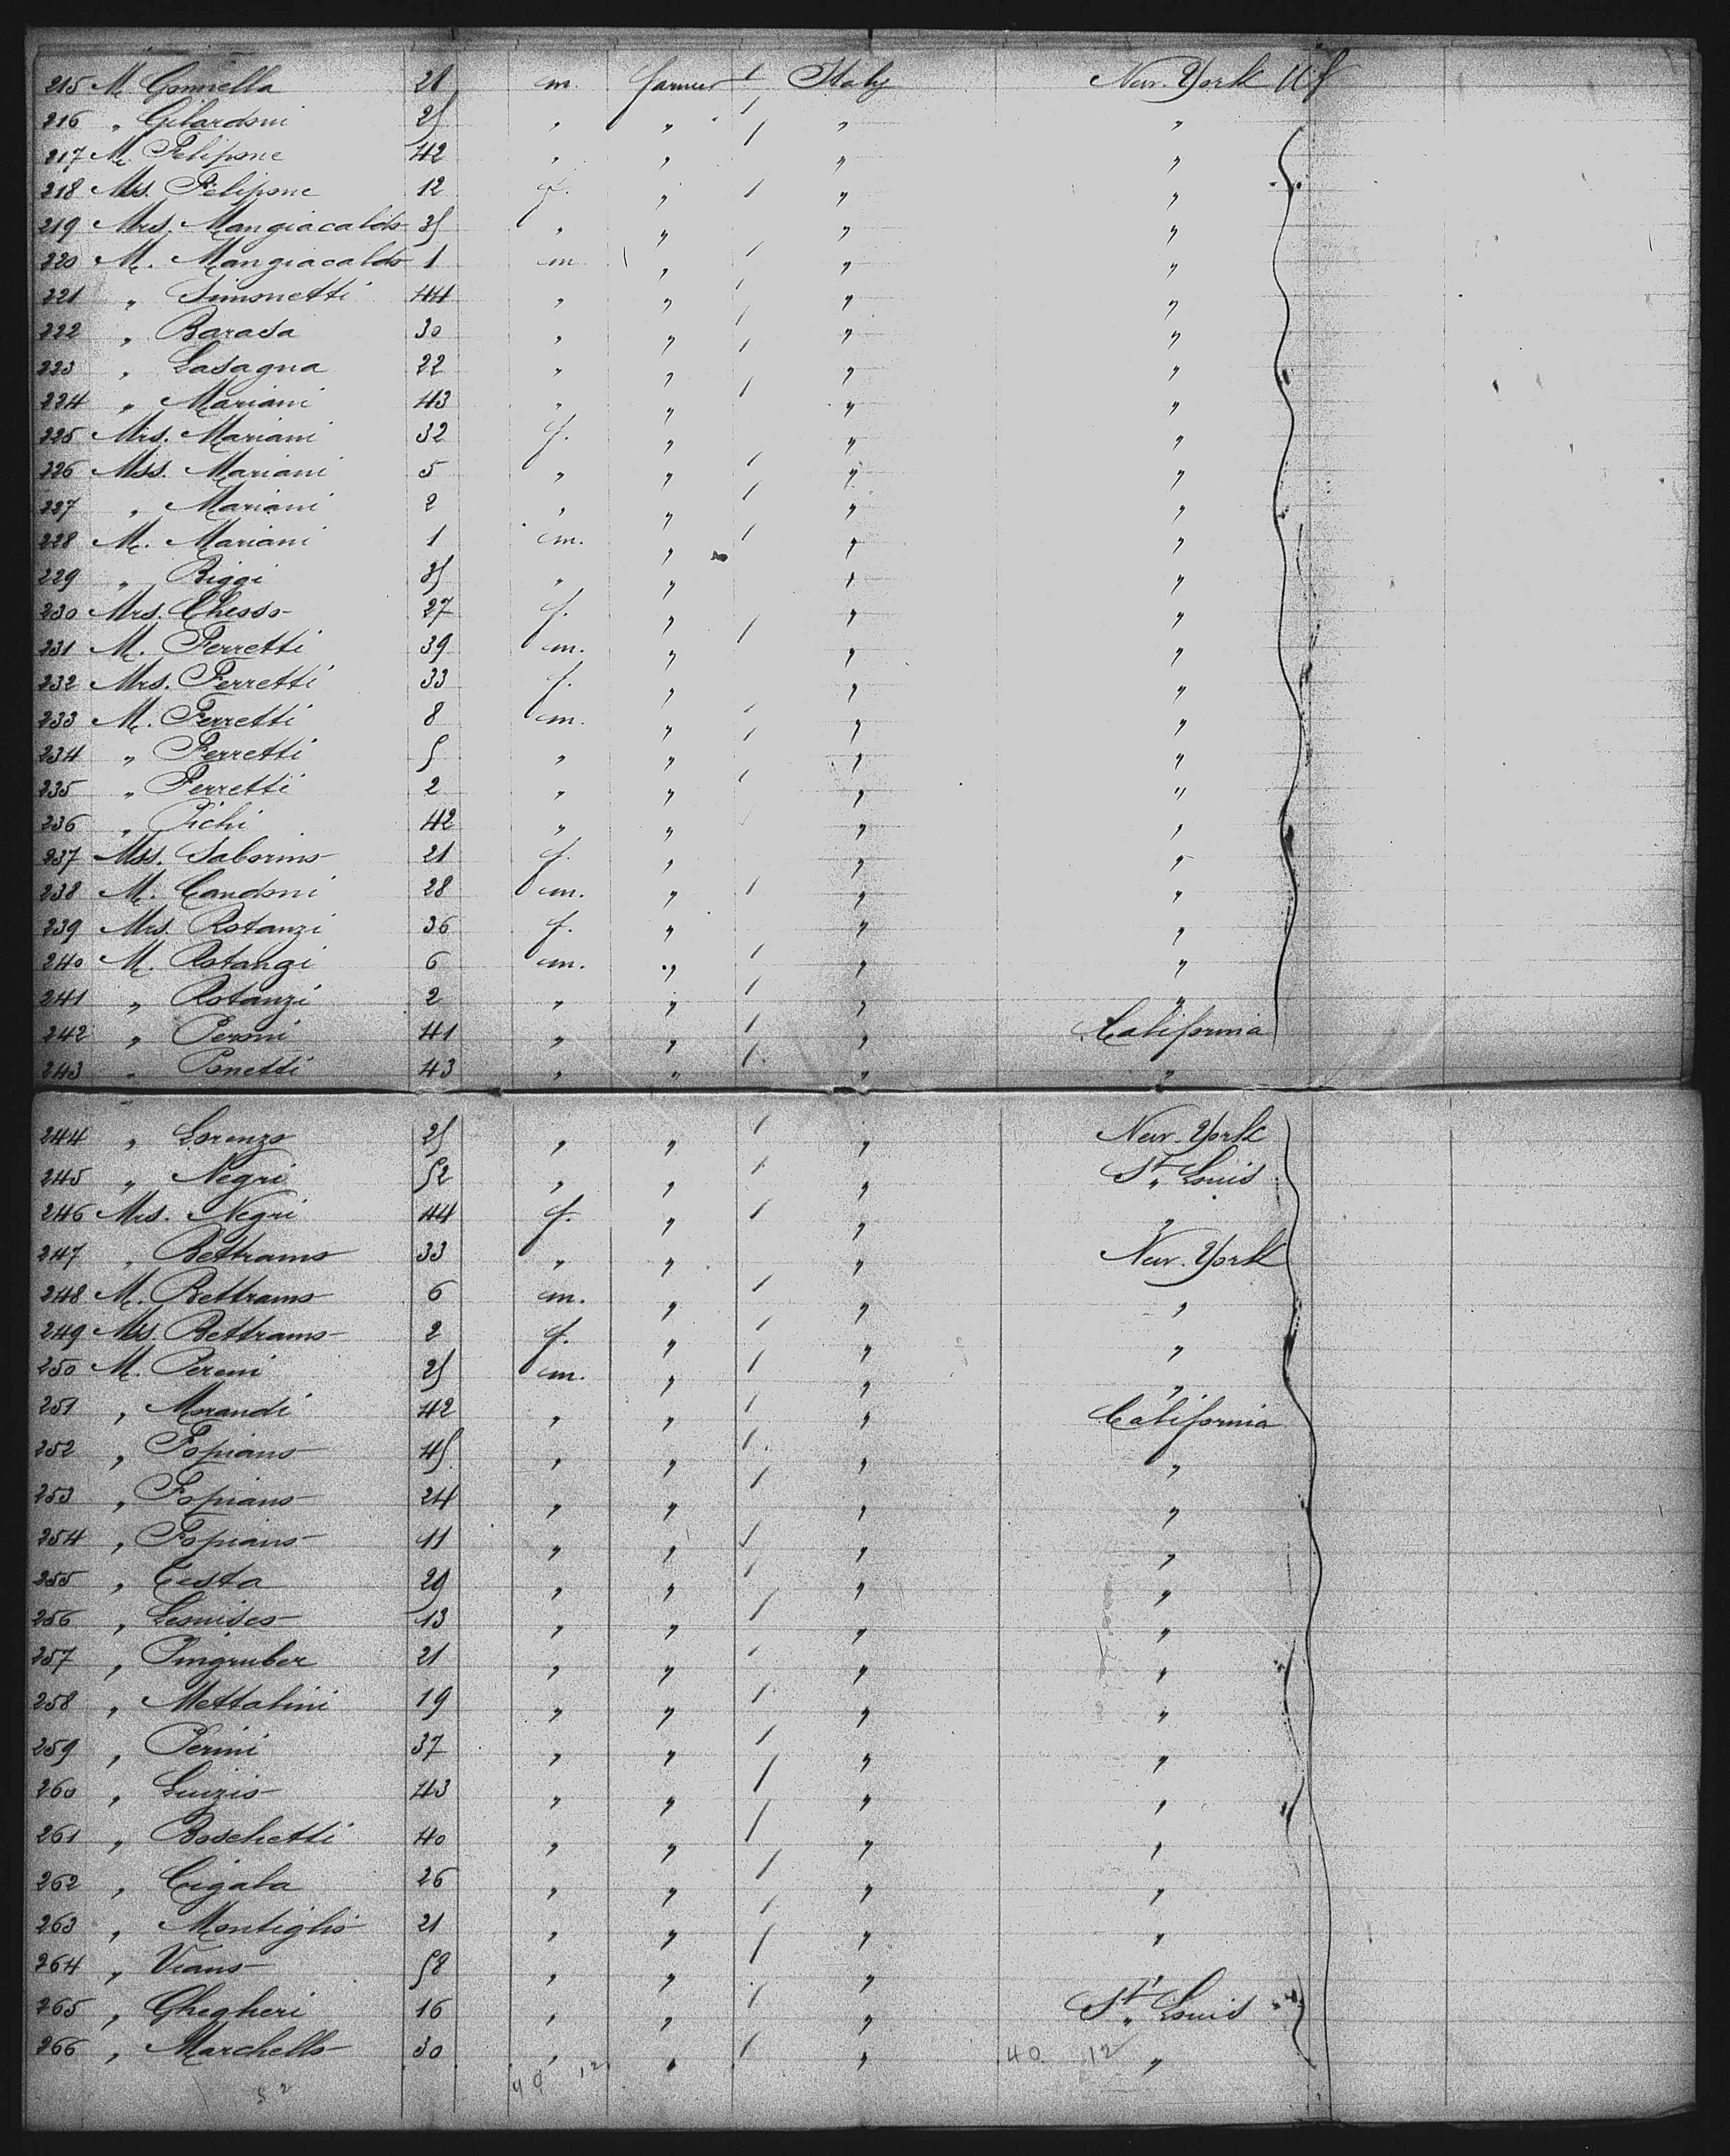 215 M. Gonnella 28 m. farmer Italy New-York Uf
216 " Gilardoni 25 " " " "
217 M. Felipone 42 " " " "
218 Mss. Felipone 12 f. " " "
219 Mrs. Mangiacaldo 35 " " " "
220 M. Mangiacaldo 1 m " " "
221 " Simonetti 44 " " " "
222 " Barasa 30 " " " "
223 " Lasagna 22 " " " "
224 " Mariani 43 " " " "
225 Mrs. Mariani 32 f. " " "
226 Mss. Mariani 5 " " " "
227 " Mariani 2 " " " "
228 M. Mariani 1 m. " " "
229 " Biggi 35 " " " "
230 Mrs. Chesso 27 f. " " "
231 M. Ferretti 39 m. " " "
232 Mrs. Ferretti 33 f. " " "
233 M. Ferretti 8 m. " " "
234 " Ferretti 5 " " " "
235 " Ferretti 2 " " " "
236 " Pichi 42 " " " "
237 Mss. Saborino 21 f. " " "
238 M. Candoni 28 m. " " "
239 Mrs. Rotanzi 36 f. " " "
240 M. Rotanzi 6 m. " " "
241 " Rotanzi 2 " " " "
242 " Peroni 41 " " " California
243 " Ponetti 43 " " " "
244 " Lorenzo 25 " " " New-York
245 " Negri 52 " " " St. Louis
246 Mrs. Negri 44 f. " " "
247 " Bettramo 33 " " " New-York
248 M. Bettramo 6 m. " " "
249 Mss. Bettramo 2 f. " " "
250 M. Pereni 25 m. " " "
251 " Morandi 42 " " " California
252 " Fopiano 45 " " " "
253 " Fopiano 24 " " " "
254 " Fopiano 11 " " " "
255 " Cesta 29 " " " "
256 " 13 " " " "
257 " Pingruber 21 " " " "
258 " Mettalini 19 " " " "
259 " Perini 37 " " " "
260 " Luizio 43 " " " "
261 " Boschetti 40 " " " "
262 " Cigala 26 " " " "
263 " Montiglio 21 " " " "
264 " Viano 58 " " " "
265 " Ghegheri 16 " " " St. Louis
266 " Marchello 30 " " " "
40 12
52 40 12